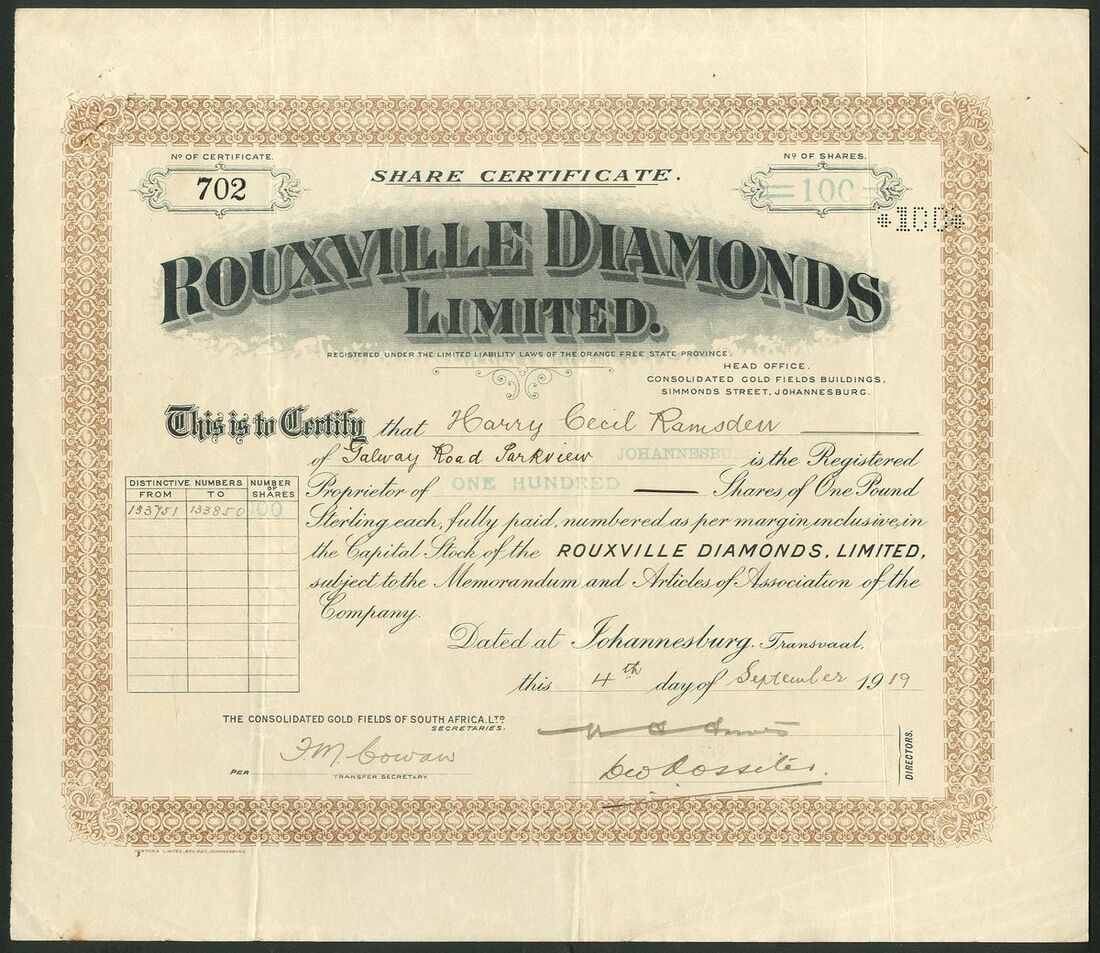 Nº OF CERTIFICATE.
702
SHARE CERTIFICATE.
Nº OF SHARES.
= 100 =
*100*
ROUXVILLE DIAMONDS
LIMITED.
REGISTERED UNDER THE LIMITED LIABILITY LAWS OF THE ORANGE FREE STATE PROVINCE.
HEAD OFFICE.
CONSOLIDATED GOLD FIELDS BUILDINGS,
SIMMONDS STREET, JOHANNESBURG.
This is to Certify that Harry Cecil Ramsden
of Galway Road Parkview JOHANNESBU is the Registered
Proprietor of ONE HUNDRED Shares of One Pound
Sterling each, fully paid, numbered as per margin inclusive, in
the Capital Stock of the ROUXVILLE DIAMONDS, LIMITED,
subject to the Memorandum and Articles of Association of the
Company.
DISTINCTIVE NUMBERS NUMBER OF SHARES
FROM TO
133751 133850 100
Dated at Johannesburg, Transvaal,
this 4th day of September 1919
THE CONSOLIDATED GOLD FIELDS OF SOUTH AFRICA, LTD
SECRETARIES.
PER F M Cowan
TRANSFER SECRETARY.
Geo Rossiter.
DIRECTORS.
LIMITED, JOHANNESBURG.